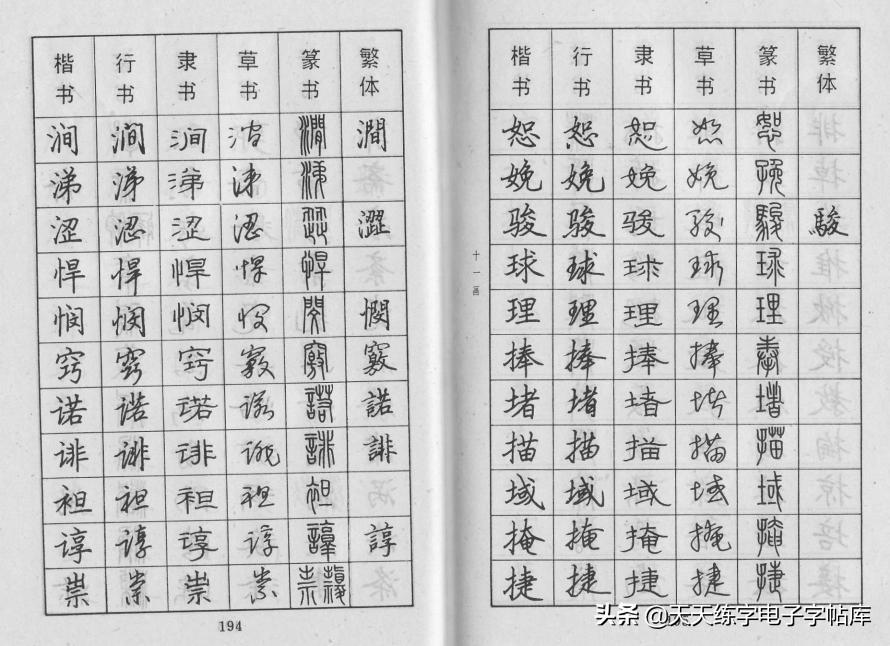 楷书 行书 隶书 草书 篆书 繁体
涧 涧 涧 涧 澗 澗
涕 涕 涕 涕 涕
涩 涩 涩 涩 澀 澀
悍 悍 悍 悍 悍
悯 悯 悯 悯 閔 憫
窍 窍 窍 窍 竅 竅
诺 诺 诺 诺 諾 諾
诽 诽 诽 诽 誹 誹
袒 袒 袒 袒 袒
谆 谆 谆 谆 諄 諄
祟 祟 祟 祟
194
楷书 行书 隶书 草书 篆书 繁体
恕 恕 恕 恕 恕
娩 娩 娩 娩 娩
骏 骏 骏 骏 駿 駿
球 球 球 球 球
十一画
理 理 理 理 理
捧 捧 捧 捧 奉
堵 堵 堵 堵 堵
描 描 描 描 描
域 域 域 域 域
掩 掩 掩 掩 掩
捷 捷 捷 捷 捷
头条 @天天练字电子字帖库